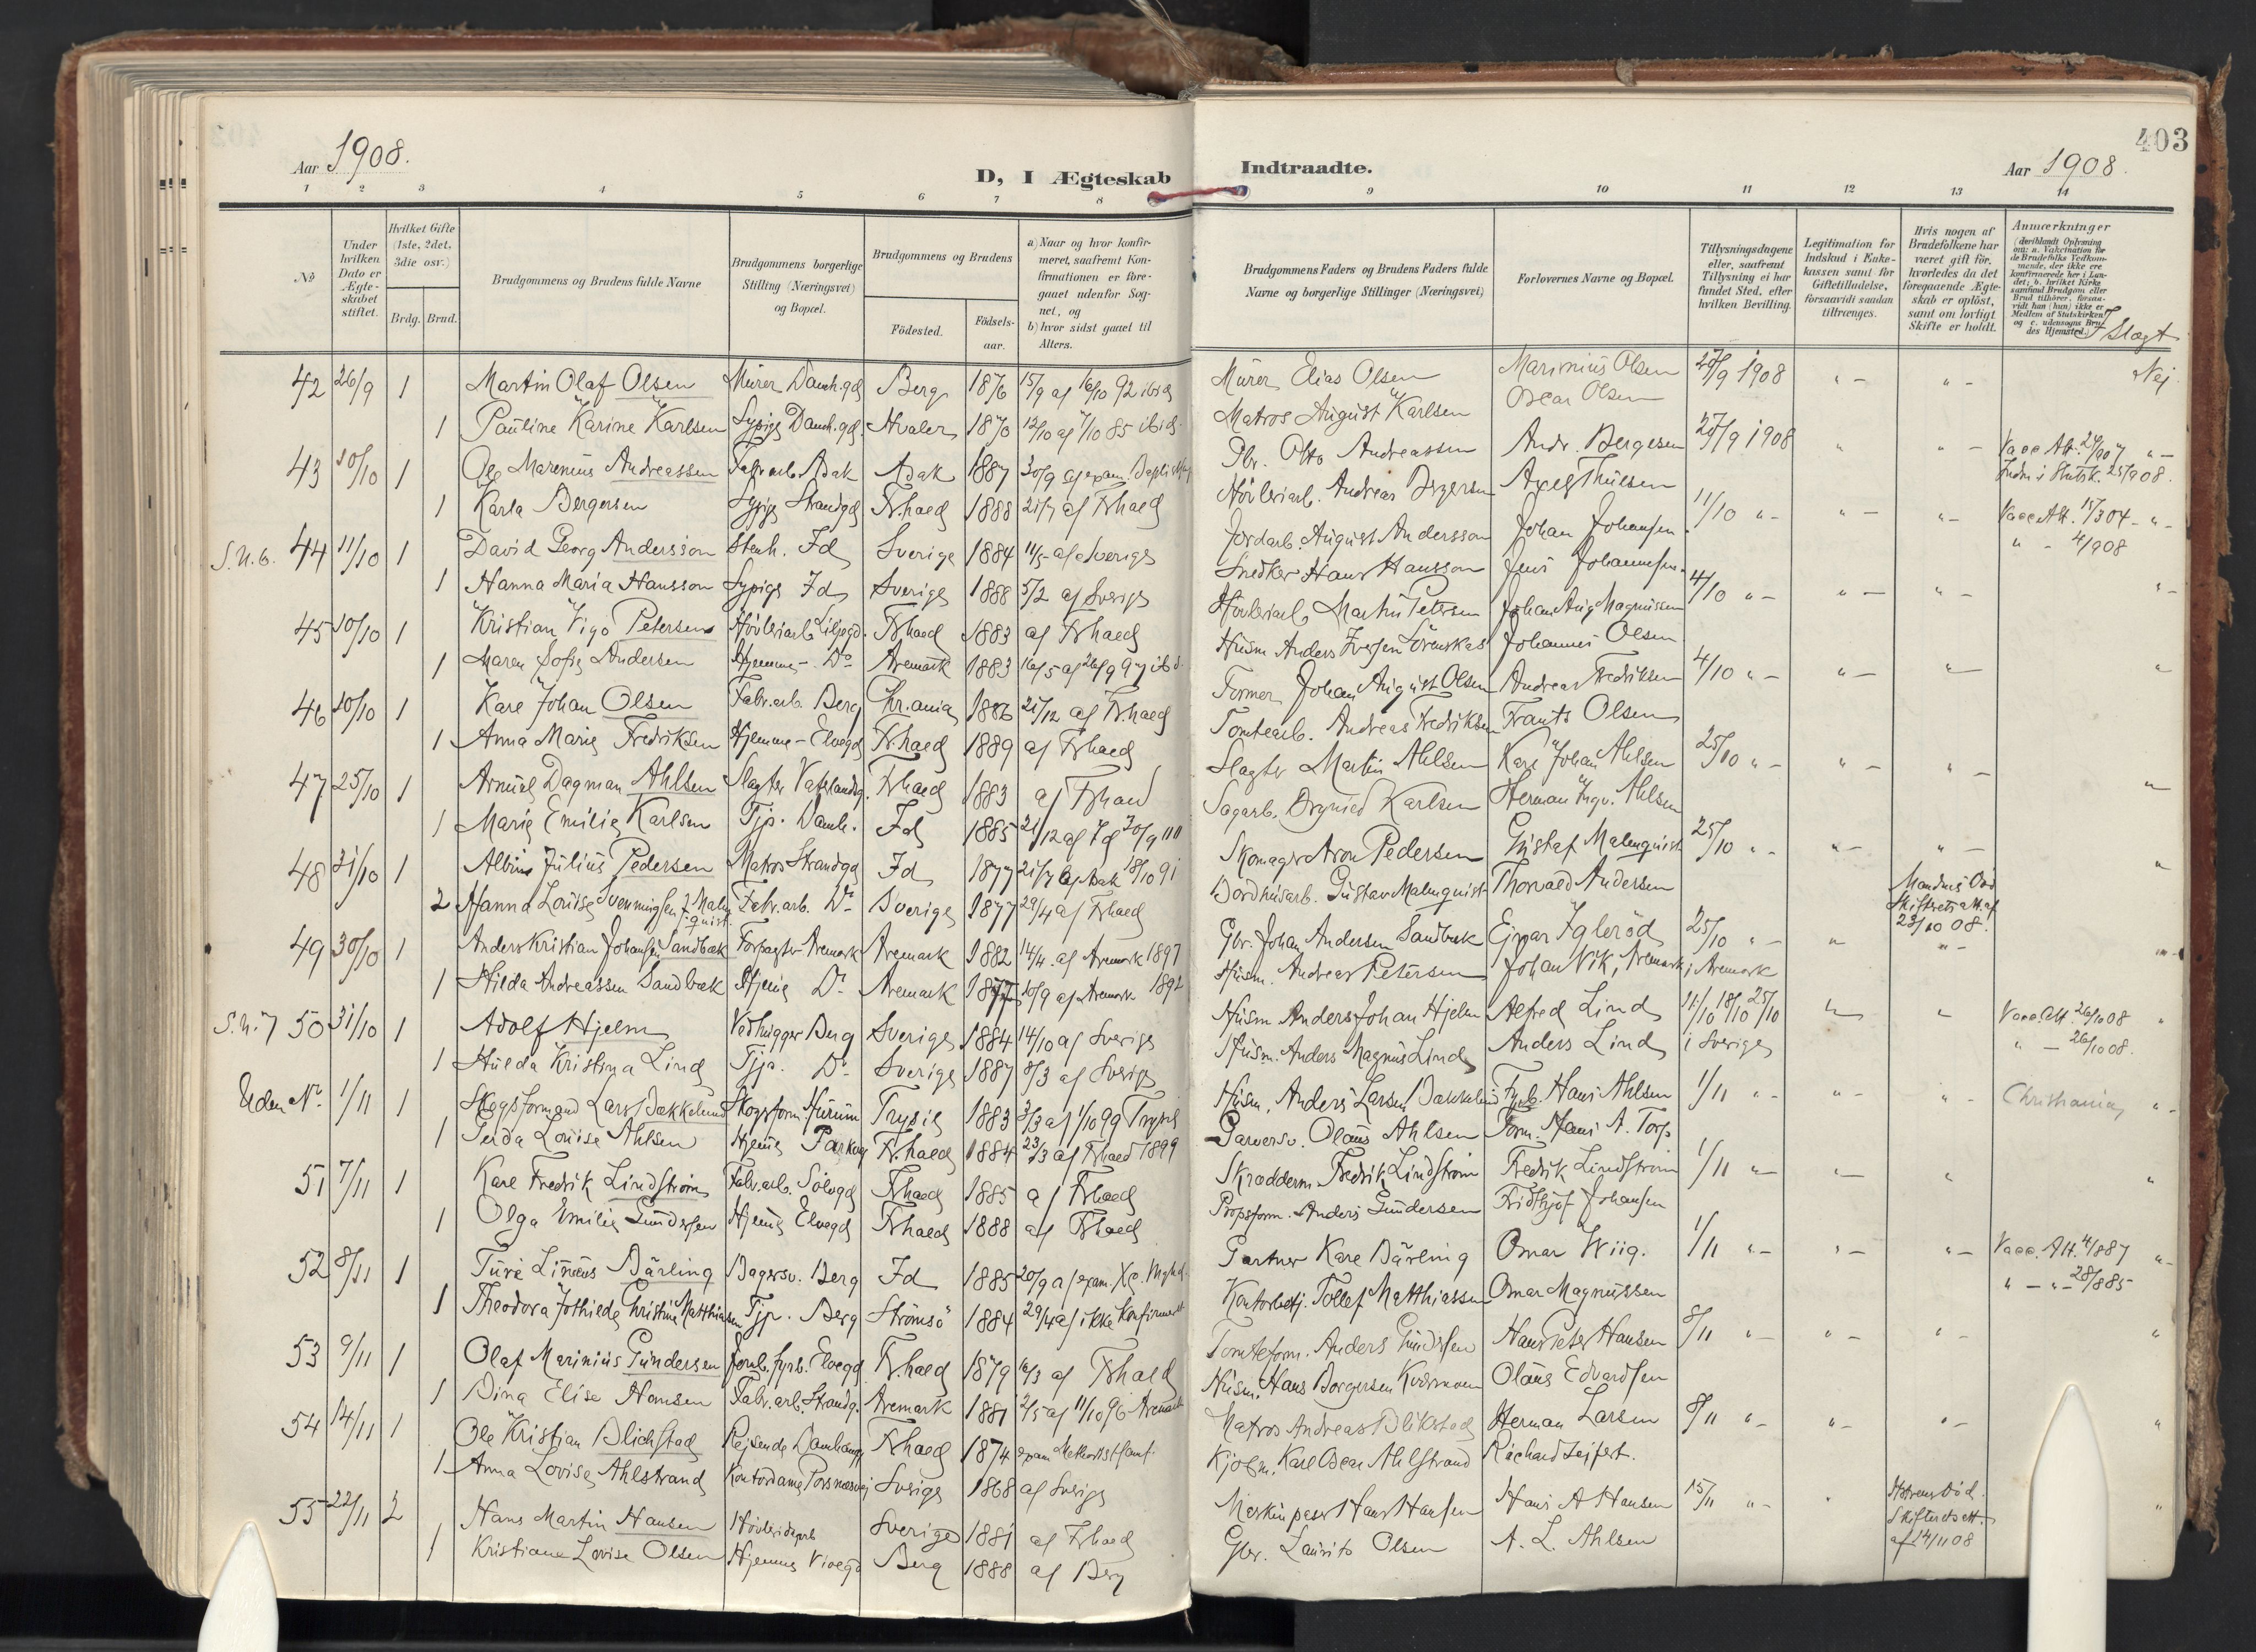 403
Aar 1908.
D, I Ægteskab Indtraadte.
Aar 1908.
1 2 3 4 5 6 7 8 9 10 11 12 13 14
№
Under hvilken Dato er Ægteskabet stiftet.
Hvilket Gifte (1ste, 2det, 3die osv.)
Brdg. Brud.
Brudgommens og Brudens fulde Navne
Brudgommens borgerlige Stilling (Næringsvei) og Bopæl.
Brudgommens og Brudens
Födested. Födsels-aar.
a) Naar og hvor konfirmeret, saafremt Konfirmationen er foregaaet udenfor Sognet, og
b) hvor sidst gaaet til Alters.
Brudgommens Faders og Brudens Faders fulde Navne og borgerlige Stillinger (Næringsvei)
Forlovernes Navne og Bopæl.
Tillysningsdagene eller, saafremt Tillysning ei har fundet Sted, efter hvilken Bevilling.
Legitimation for Indskud i Enkekassen samt for Giftetilladelse, forsaavidt saadan tiltrænges.
Hvis nogen af Brudefolkene har været gift för, hvorledes da det foregaaende Ægteskab er oplöst, samt om lovligt Skifte er holdt.
Anmærkninger
(deriblandt Oplysning om: a. Vakcination for de Brudefolks Vedkommende, der ikke ere konfirmerede her i Landet; b. hvilket Kirkesamfund Brudgom eller Brud tilhörer, forsaavidt han (hun) ikke er Medlem af Statskirken og c. udensogns Brudes Hjemsted.)
I Slægt
42 26/9 1 Martin Olaf Olsen Murer Damh.gd Berg 1876 15/9 af 16/10 92 ibid Murer Elias Olsen Marinius Olsen 20/9 1908 " - " - Nej
1 Pauline Karine Karlsen Sypige Damh.gd. Hvaler 1870 12/10 af 7/10 85 ibid. Matros August Karlsen Oscar Olsen
43 10/10 1 Ole Marenius Andreassen Fabr.arb. Asak Asak 1887 30/9 af exam. Gbr. Otto Andreassen Andr. Bergesen 27/9 1908 " " - Vacc Att.
1 Karla Bergersen Sypige Strandgd Fr.hald 1888 21/7 af Frhald Hövleriarb. Andreas Bergersen Axel Thulsen
44 11/10 1 David Georg Andersson Stenh. Id Sverige 1884 11/5 af Sverige Jordarb. August Andersson Johan Johansen 11/10 " - " - " - Vacc Att. 15/3 04 - " -
S.N.6.
1 Hanna Maria Hansson Sypige Id Sverige 1888 5/2 af Sverige Snedker Hans Hansson Jens Johannesen " - 4/9 08
45 10/10 1 Kristian Vigo Petersen Hövleriarb. Frhald 1883 af Frhald Hövleriarb. Martin Petersen Johan Aug Magnussen 4/10 " - " - " - " -
1 Maren Sofie Andersen Hjemme - Do Aremark 1883 16/5 af 26/9 97 ibd. Husm Anders Iversen Johannes Olsen
46 10/10 1 Karl Johan Olsen Fabr.arb. Berg Chr.ania 1886 21/12 af Fr.hald Former Johan August Olsen Andreas Fredriksen 4/10 " - " - " - "
1 Anna Marie Fredriksen Hjemme - Elvegd Fr.hald 1889 af Frhald Tomtearb. Andreas Fredriksen Frants Olsen
47 25/10 1 Arnuel Dagman Ahlsen Slagter Frhald 1883 af Frhald Slagter Martin Ahlsen Karl Johan Ahlsen 25/10 " - " - " - "
1 Marie Emilie Karlsen Tjp. Damh. Id 1885 21/12 af Id Sagarb. Karlsen Herman Ingv. Ahlsen
48 31/10 1 Albin Julius Pedersen Matros Strandgd Id 1877 21/7 af Asak 18/10 91 Skomager Aron Pedersen Gustaf Malmquist 25/10 " - " - " - "
2 Hanna Louise Svenningsen f. Malmquist. Fabr.arb. Do Sverige 1877 29/4 af Frhald Bordhusarb. Gustav Malmquist Thorvald Andersen Mandens Död Skifterets att. af 23/10 08.
49 30/10 1 Anders Kristian Johansen Sandbæk Forpagter Aremark Aremark 1882 14/4 af Aremark 1897 Gbr. Johan Andersen Sandbæk Ejnar Iglerød 25/10 " - " " - " -
1 Hilda Andreassen Sandbæk Hjemme Do Aremark 1877 10/9 af Aremark 1892 Husm. Andreas Petersen Johan Vik, Aremark i Aremark
S.N.7 50 31/10 1 Adolf Hjelm Vedhugger Berg Sverige 1884 14/10 af Sverige Husm Anders Johan Hjelm Alfred Lind 11/10 18/10 25/10 " " Vacc. Att. 26/10 08 "
1 Hulda Kristina Lind Tjp. Do Sverige 1887 8/3 af Sverige Husm. Anders Magnus Lind Anders Lind i Sverige " - 26/10 08.
Uden No. 1/11 1 Skogsformand Lars Bækkelund Skogsform. Hurum Trysil 1883 3/3 af 1/10 99 Trysil Husm. Anders Larsen Bækkelund Fyrb. Hans Ahlsen 1/11 " - " - " - Christiania " -
1 Gerda Louise Ahlsen Hjemme Parkvej Fr.hald 1884 23/3 af Frhald 1899 Garversv. Olaus Ahlsen Form. Hans A. Torp
51 7/11 1 Karl Fredrik Lindström Fabr.arb. Sölvgd Frhald 1885 af Frhald Skrædderm. Fredrik Lindström Fredrik Lindström 1/11 " - " - " "
1 Olga Emilie Gundersen Hjemme Elvegd Frhald 1888 af Frhald Propsform. Anders Gundersen Fridthjof Johansen
52 8/11 1 Ture Linneus Bärling Bagersv. Berg Id 1885 20/9 af exam. Gartner Karl Bärling Omar Wiig. 1/11 " - " - " - Vacc. Att. 4/8 87 " -
1 Theodora Jothilde Christine Matthiasen Tjp. Berg Strömsö 1884 29/4 af ikke konfirmert Kontorbetj. Tollef Matthiassen Omar Magnussen " - " - 28/8 85
53 9/11 1 Olaf Marinius Gundersen Jernb.fyrb. Elvegd. Fr.hald 1879 16/3 af Frhald Tomteform. Anders Gundersen Hans Peter Hansen 8/11 " - " - " - "
1 Dina Elise Hansen Fabr.arb. Strandg. Aremark 1881 2/5 af 11/10 96 Aremark Husm. Hans Borgersen Olaus Edvardsen
54 14/11 1 Ole Kristian Blichstad Rejsende Frhald 1874 exam Methodistsamf. Matros Andreas Blikstad Herman Larsen 8/11 " - " - " - "
1 Anna Lovise Ahlstrand Kontordame Sverige 1868 af Sverige Kjöbm. Karl Oscar Ahlstrand Richard Seifert.
55 22/11 2 Hans Martin Hansen Sverige 1881 af Frhald Maskinpaser Hans Hansen Hans A Hansen 15/11 " - " Konens Död. Skifterets att. af 14/11 08 "
1 Kristiane Lovise Olsen Hjemme Berg 1888 af Berg Gbr. Laurits Olsen A. L. Ahlsen